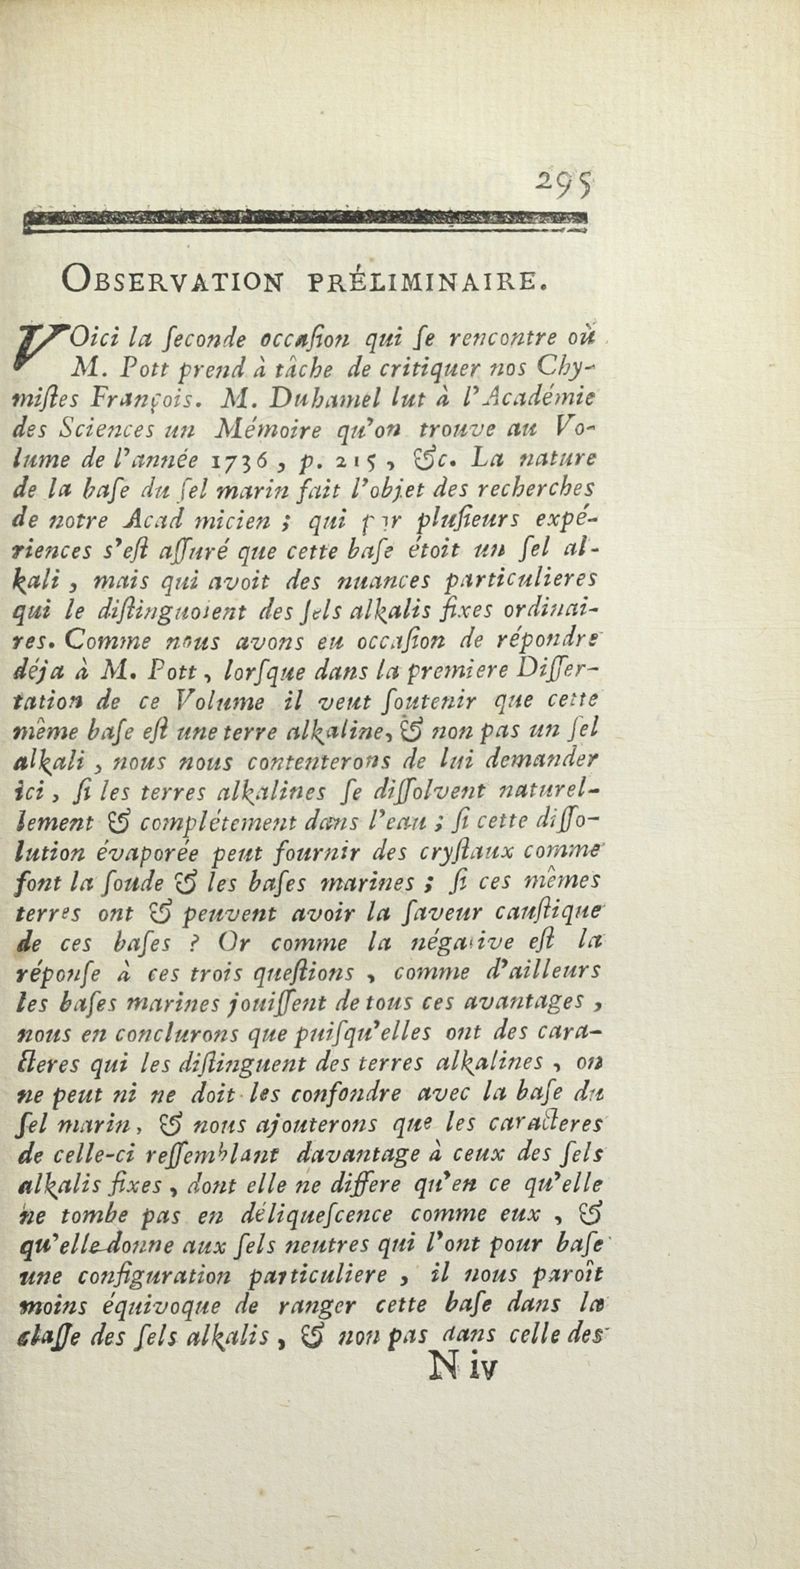 295
OBSERVATION PRÉLIMINAIRE.
VOici la ſeconde occaſion qui ſe rencontre où
M. Pott prend à tâche de critiquer nos Chy-
miſtes François. M. Duhamel lut à l'Académie
des Sciences un Mémoire qu'on trouve au Vo-
lume de l'année 1736, p. 215, &c. La nature
de la baſe du ſel marin fait l'objet des recherches
de notre Acad micien ; qui p r pluſieurs expé-
riences s'eſt aſſuré que cette baſe étoit un ſel al-
kali, mais qui avoit des nuances particulieres
qui le diſtinguoient des ſels alkalis fixes ordinai-
res. Comme nous avons eu occaſion de répondre
déja à M. Pott, lorſque dans la premiere Diſſer-
tation de ce Volume il veut ſoutenir que cette
même baſe eſt une terre alkaline, & non pas un ſel
alkali, nous nous contenterons de lui demander
ici, ſi les terres alkalines ſe diſſolvent naturel-
lement & complétement dans l'eau ; ſi cette diſſo-
lution évaporée peut fournir des cryſtaux comme
font la ſoude & les baſes marines ; ſi ces mêmes
terres ont & peuvent avoir la ſaveur cauſtique
de ces baſes ? Or comme la négative eſt la
réponſe à ces trois queſtions, comme d'ailleurs
les baſes marines jouiſſent de tous ces avantages,
nous en conclurons que puiſqu'elles ont des cara-
cteres qui les diſtinguent des terres alkalines, on
ne peut ni ne doit les confondre avec la baſe du
ſel marin, & nous ajouterons que les caracteres
de celle-ci reſſemblant davantage à ceux des ſels
alkalis fixes, dont elle ne differe qu'en ce qu'elle
ne tombe pas en déliqueſcence comme eux, &
qu'elle donne aux ſels neutres qui l'ont pour baſe
une configuration particuliere, il nous paroît
moins équivoque de ranger cette baſe dans la
claſſe des ſels alkalis, & non pas dans celle des
N iv